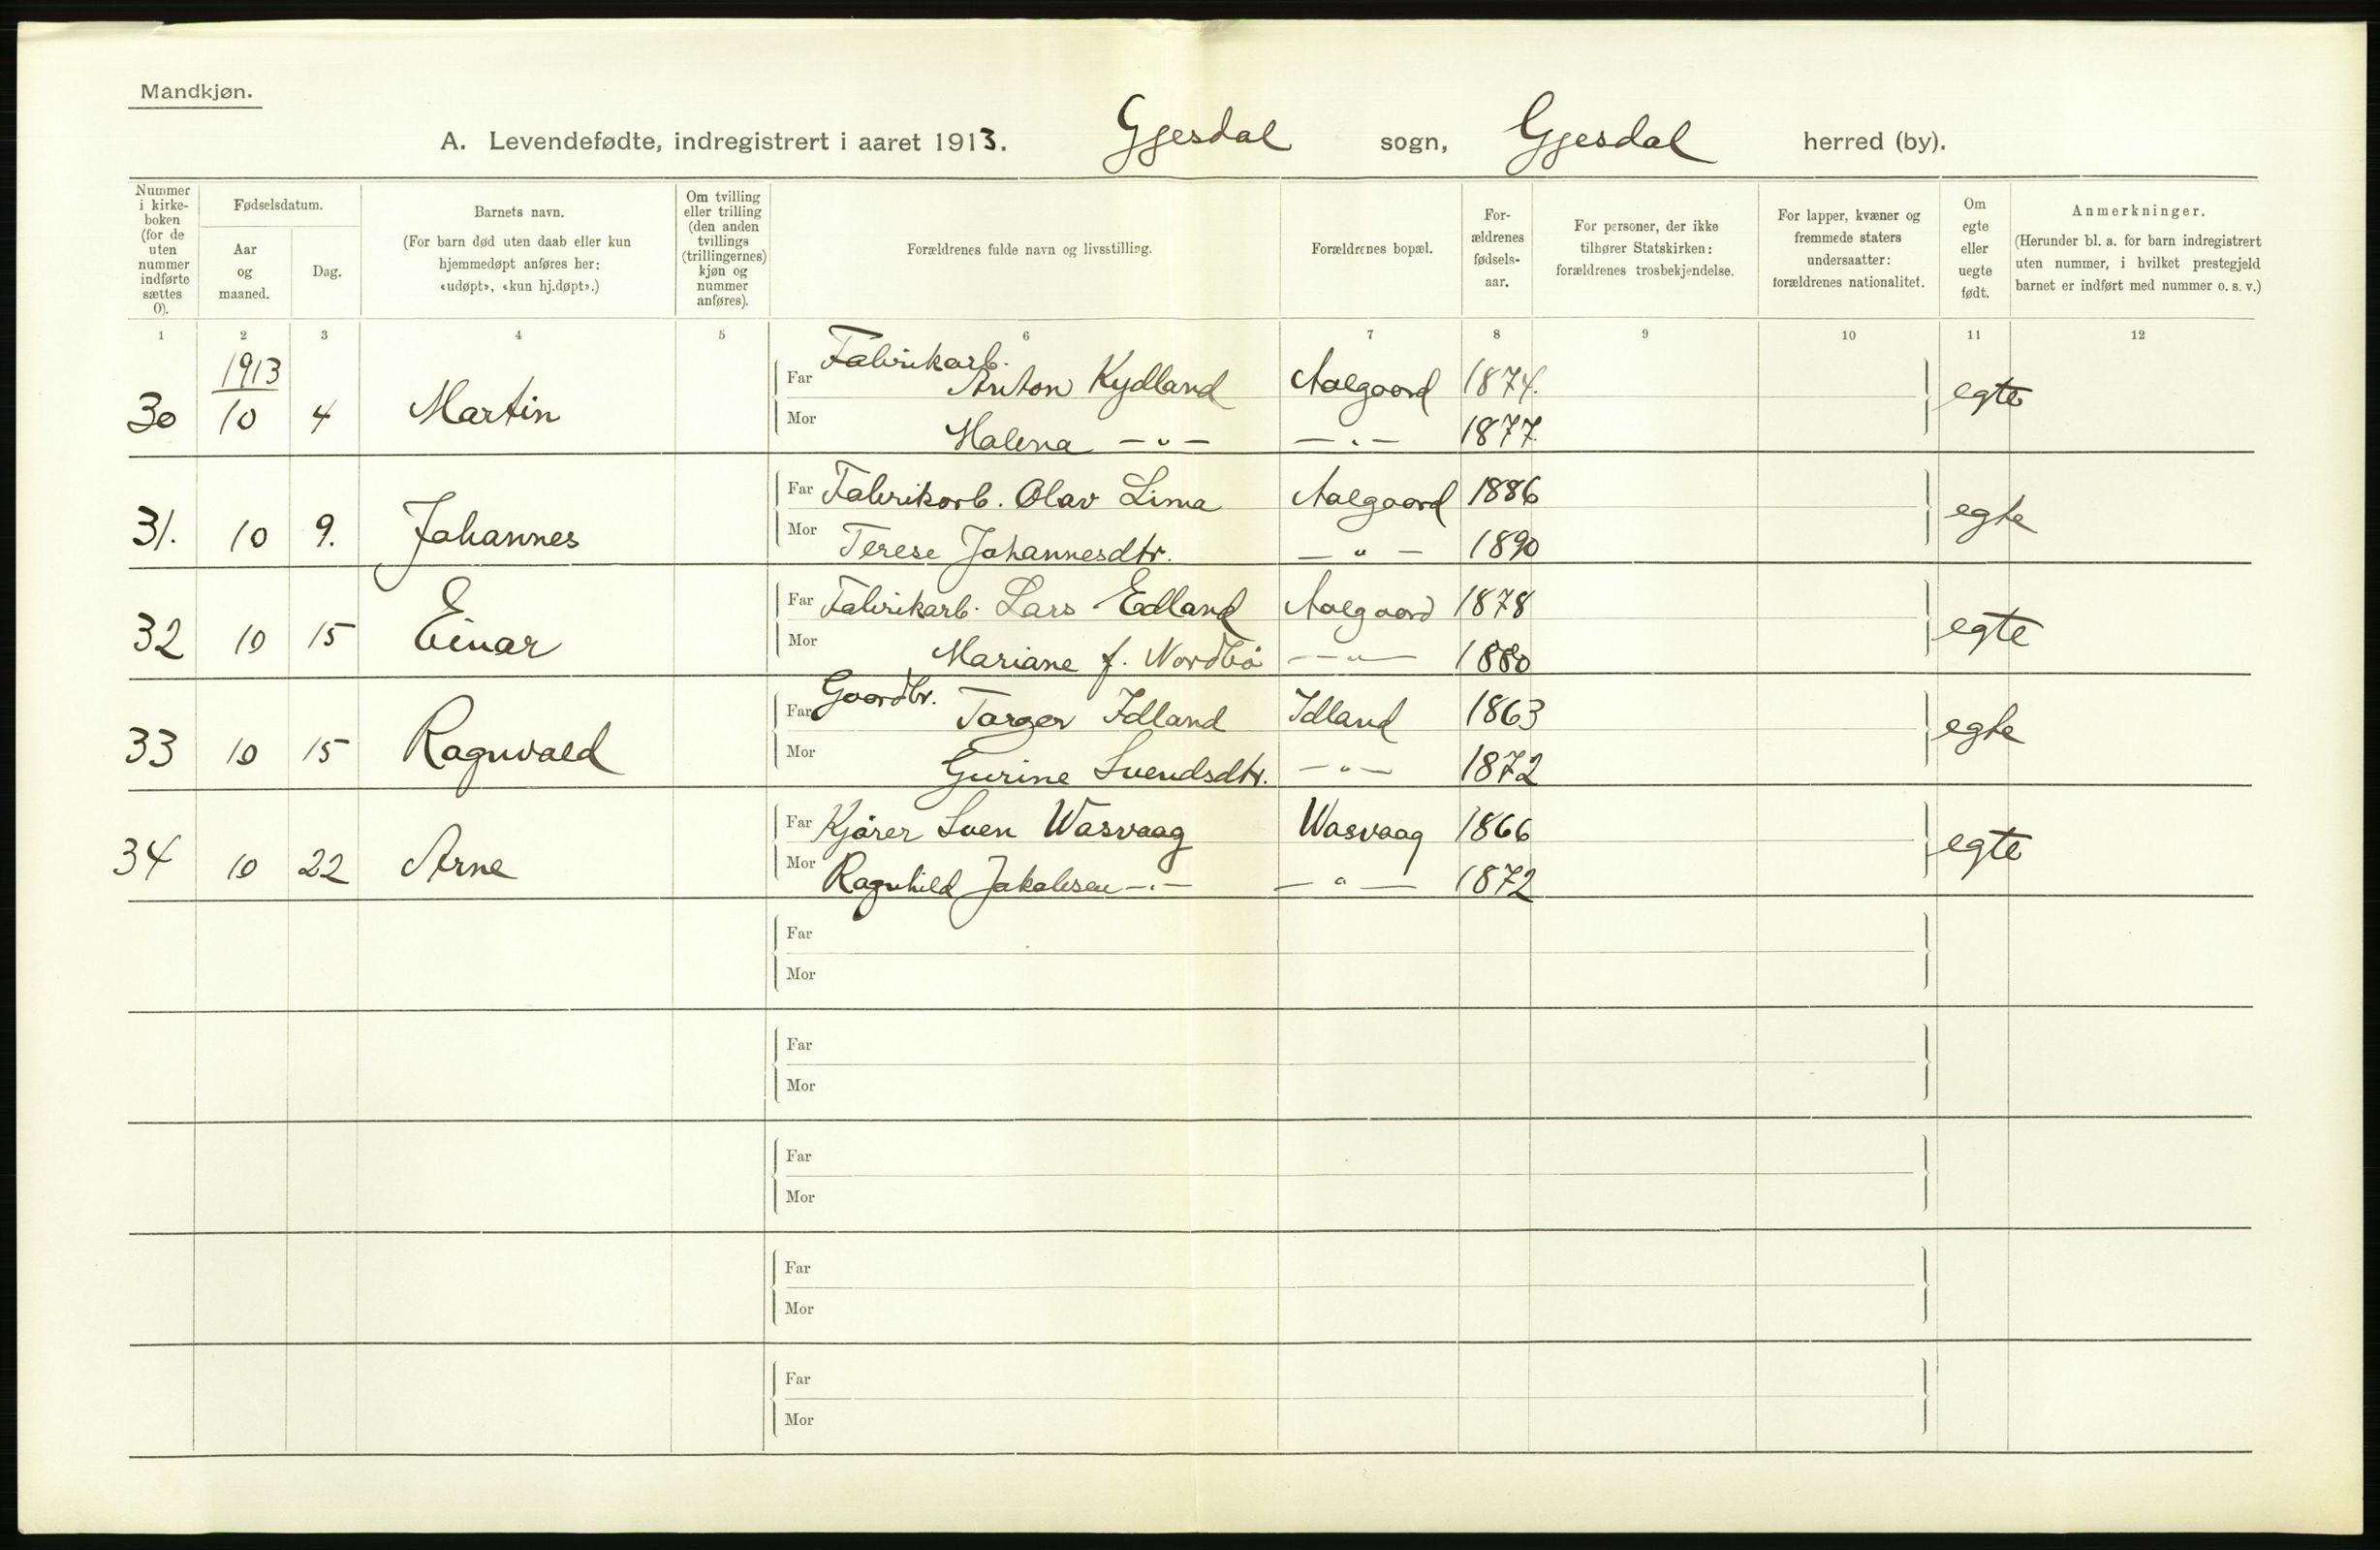 Mandkjøn.
A. Levendefødte, indregistrert i aaret 1913. Gjesdal sogn, Gjesdal herred (by).
Nummer i kirke-boken (for de uten nummer indførte sættes 0).
Fødselsdatum.
Aar og maaned.
Dag.
Barnets navn.
(For barn død uten daab eller kun hjemmedøpt anføres her: «udøpt», «kun hj.døpt».)
Om tvilling eller trilling (den anden tvillings (trillingernes) kjøn og nummer anføres).
Forældrenes fulde navn og livsstilling.
Forældrenes bopæl.
For-ældrenes fødsels-aar.
For personer, der ikke tilhører Statskirken: forældrenes trosbekjendelse.
For lapper, kvæner og fremmede staters undersaatter: forældrenes nationalitet.
Om egte eller uegte født.
Anmerkninger.
(Herunder bl. a. for barn indregistrert uten nummer, i hvilket prestegjeld barnet er indført med nummer o. s. v.)
1 2 3 4 5 6 7 8 9 10 11 12
1913
30 10 4 Martin Far Fabrikarb. Anton Kydland Aalgaard 1874. egte
Mor Malena —„— —„— 1877.
31. 10 9. Johannes Far Fabrikarb. Olav Lima Aalgaard 1886 egte
Mor Terese Johannesdtr. —„— 1890
32 10 15 Einar Far Fabrikarb. Lars Edland Aalgaard 1878 egte
Mor Mariane f. Nordbö —„— 1880
33 10 15 Ragnvald Far Gaardbr. Targer Idland Idland 1863 egte
Mor Gurine Svendsdtr. —„— 1872
34 10 22 Arne Far Kjörer Sven Wasvaag Wasvaag 1866 egte
Mor Ragnhild Jakobsen —„— —„— 1872
Far
Mor
Far
Mor
Far
Mor
Far
Mor
Far
Mor